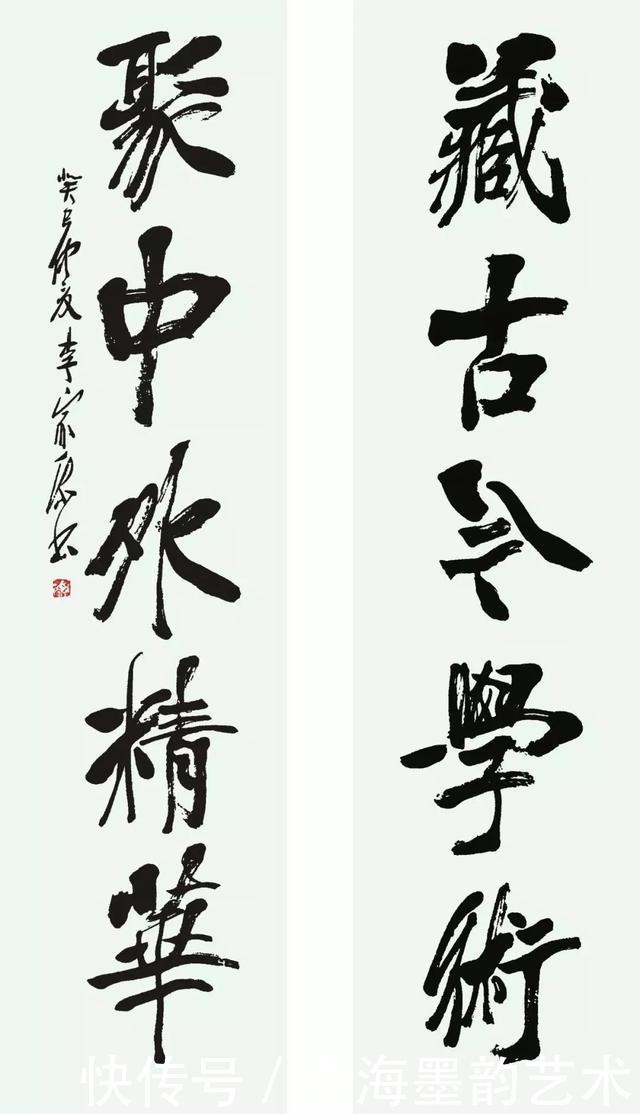 藏古今學術
聚中外精華
癸巳仲夏李家原書
快传号/海墨韵艺术